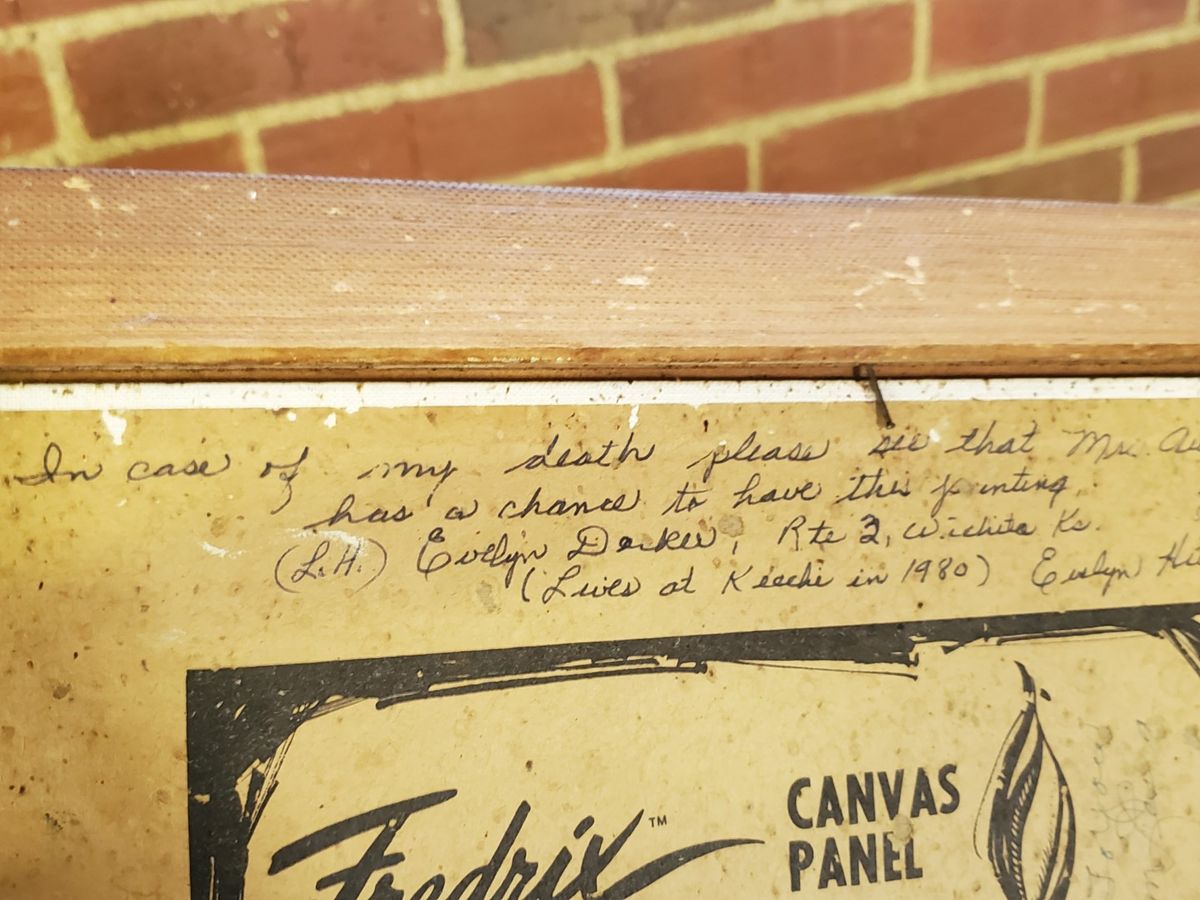 In case of my death please see that Mrs.
has a chance to have this painting.
(L.H.) Evelyn Decker, Rte 2, Wichita Ks.
(Lives at Keechi in 1980) Evelyn
Fredrix™
CANVAS
PANEL